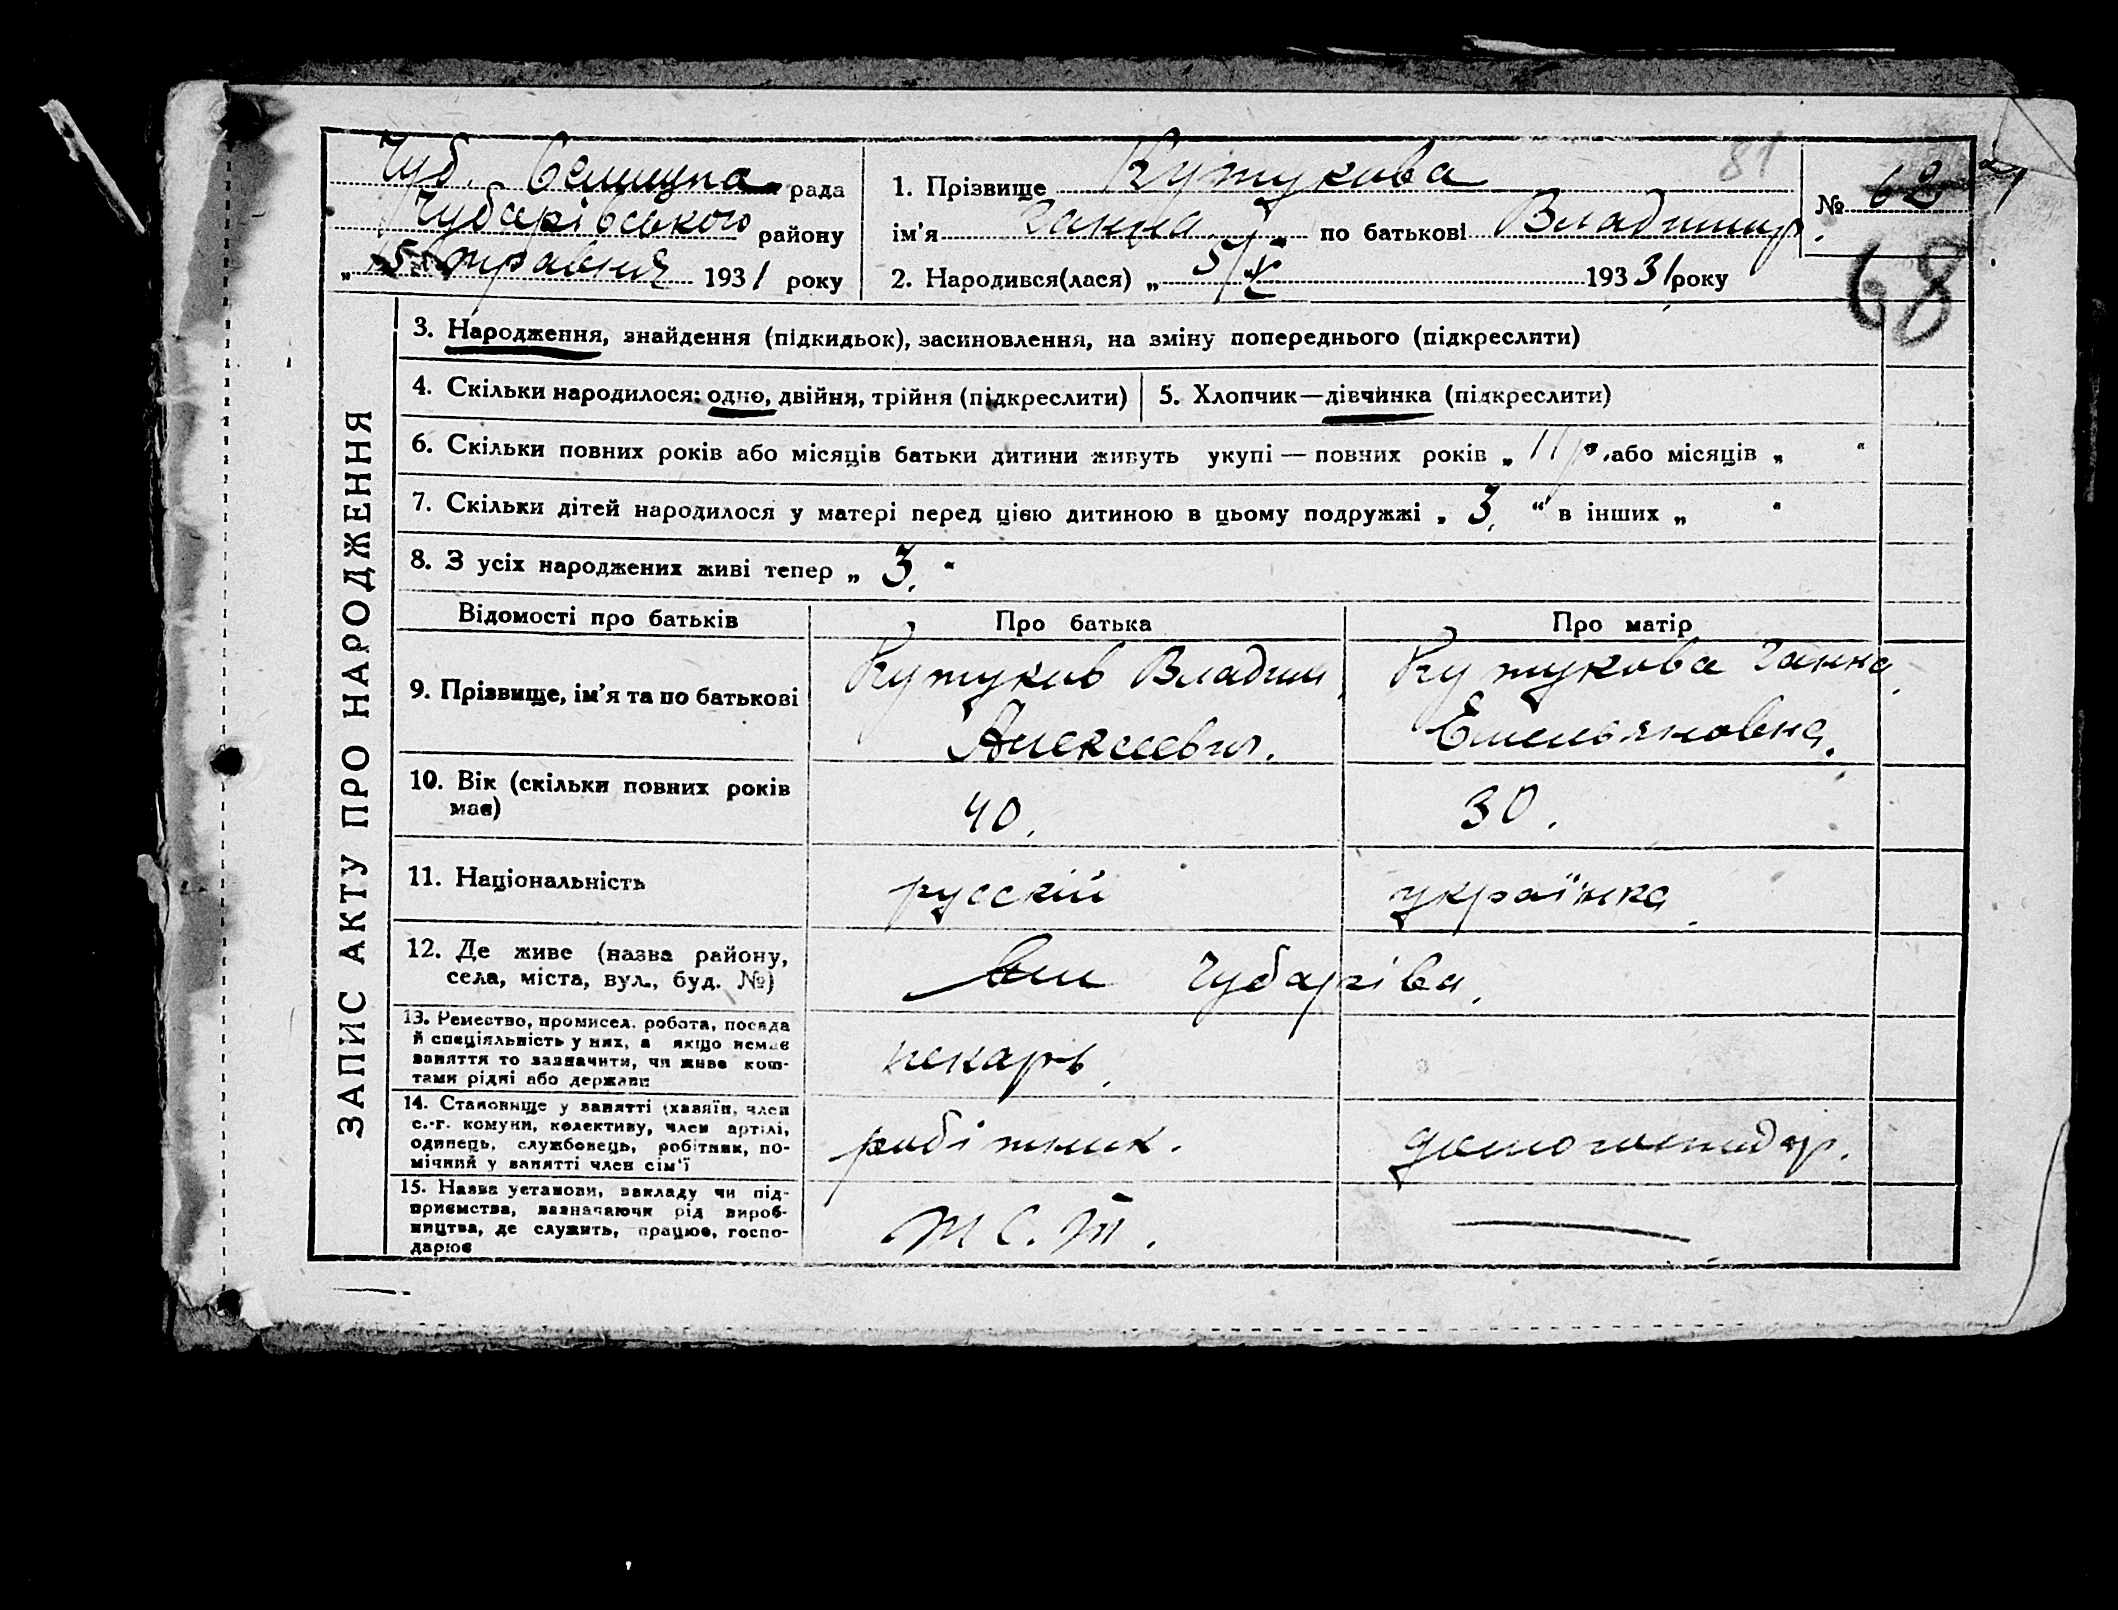 Чуб. Селищна рада
Чубарівського району
„15" травня 1931 року
1. Прізвище Кутукова
81
ім'я Ганна по батькові Владимир.
№ 62
68
2. Народився(лася) „ 5/V 193 31 року
ЗАПИС АКТУ ПРО НАРОДЖЕННЯ
3. Народження, знайдення (підкидьок), засиновлення, на зміну попереднього (підкреслити)
4. Скільки народилося: одно, двійня, трійня (підкреслити)
5. Хлопчик—дівчинка (підкреслити)
6. Скільки повних років або місяців батьки дитини живуть укупі — повних років „ 11 р. або місяців „ "
7. Скільки дітей народилося у матері перед цією дитиною в цьому подружжі „ 3. " в інших „ "
8. З усіх народжених живі тепер „ 3. "
Відомості про батьків Про батька Про матір
9. Прізвище, ім'я та по батькові Кутуков Владим. Кутукова Ганна
Алексеевич. Емельяновна.
10. Вік (скільки повних років
має)
40. 30.
11. Національність русскій українка
12. Де живе (назва району,
села, міста, вул., буд. №)
Чубарівка.
13. Ремество, промисел, робота, посада
й спеціяльність у них, а якщо немає
заняття то зазначити, чи живе кош-
тами рідні або держави
пекарь.
14. Становище у занятті (хазяїн, член
с.-г. комуни, колективу, член артілі,
одинець, службовець, робітник, по-
мічний у занятті член сім'ї
робітник. домогосподар.
15. Назва установи, закладу чи під-
приємства, зазначаючи рід вироб-
ництва, де служить, працює, госпо-
дарює